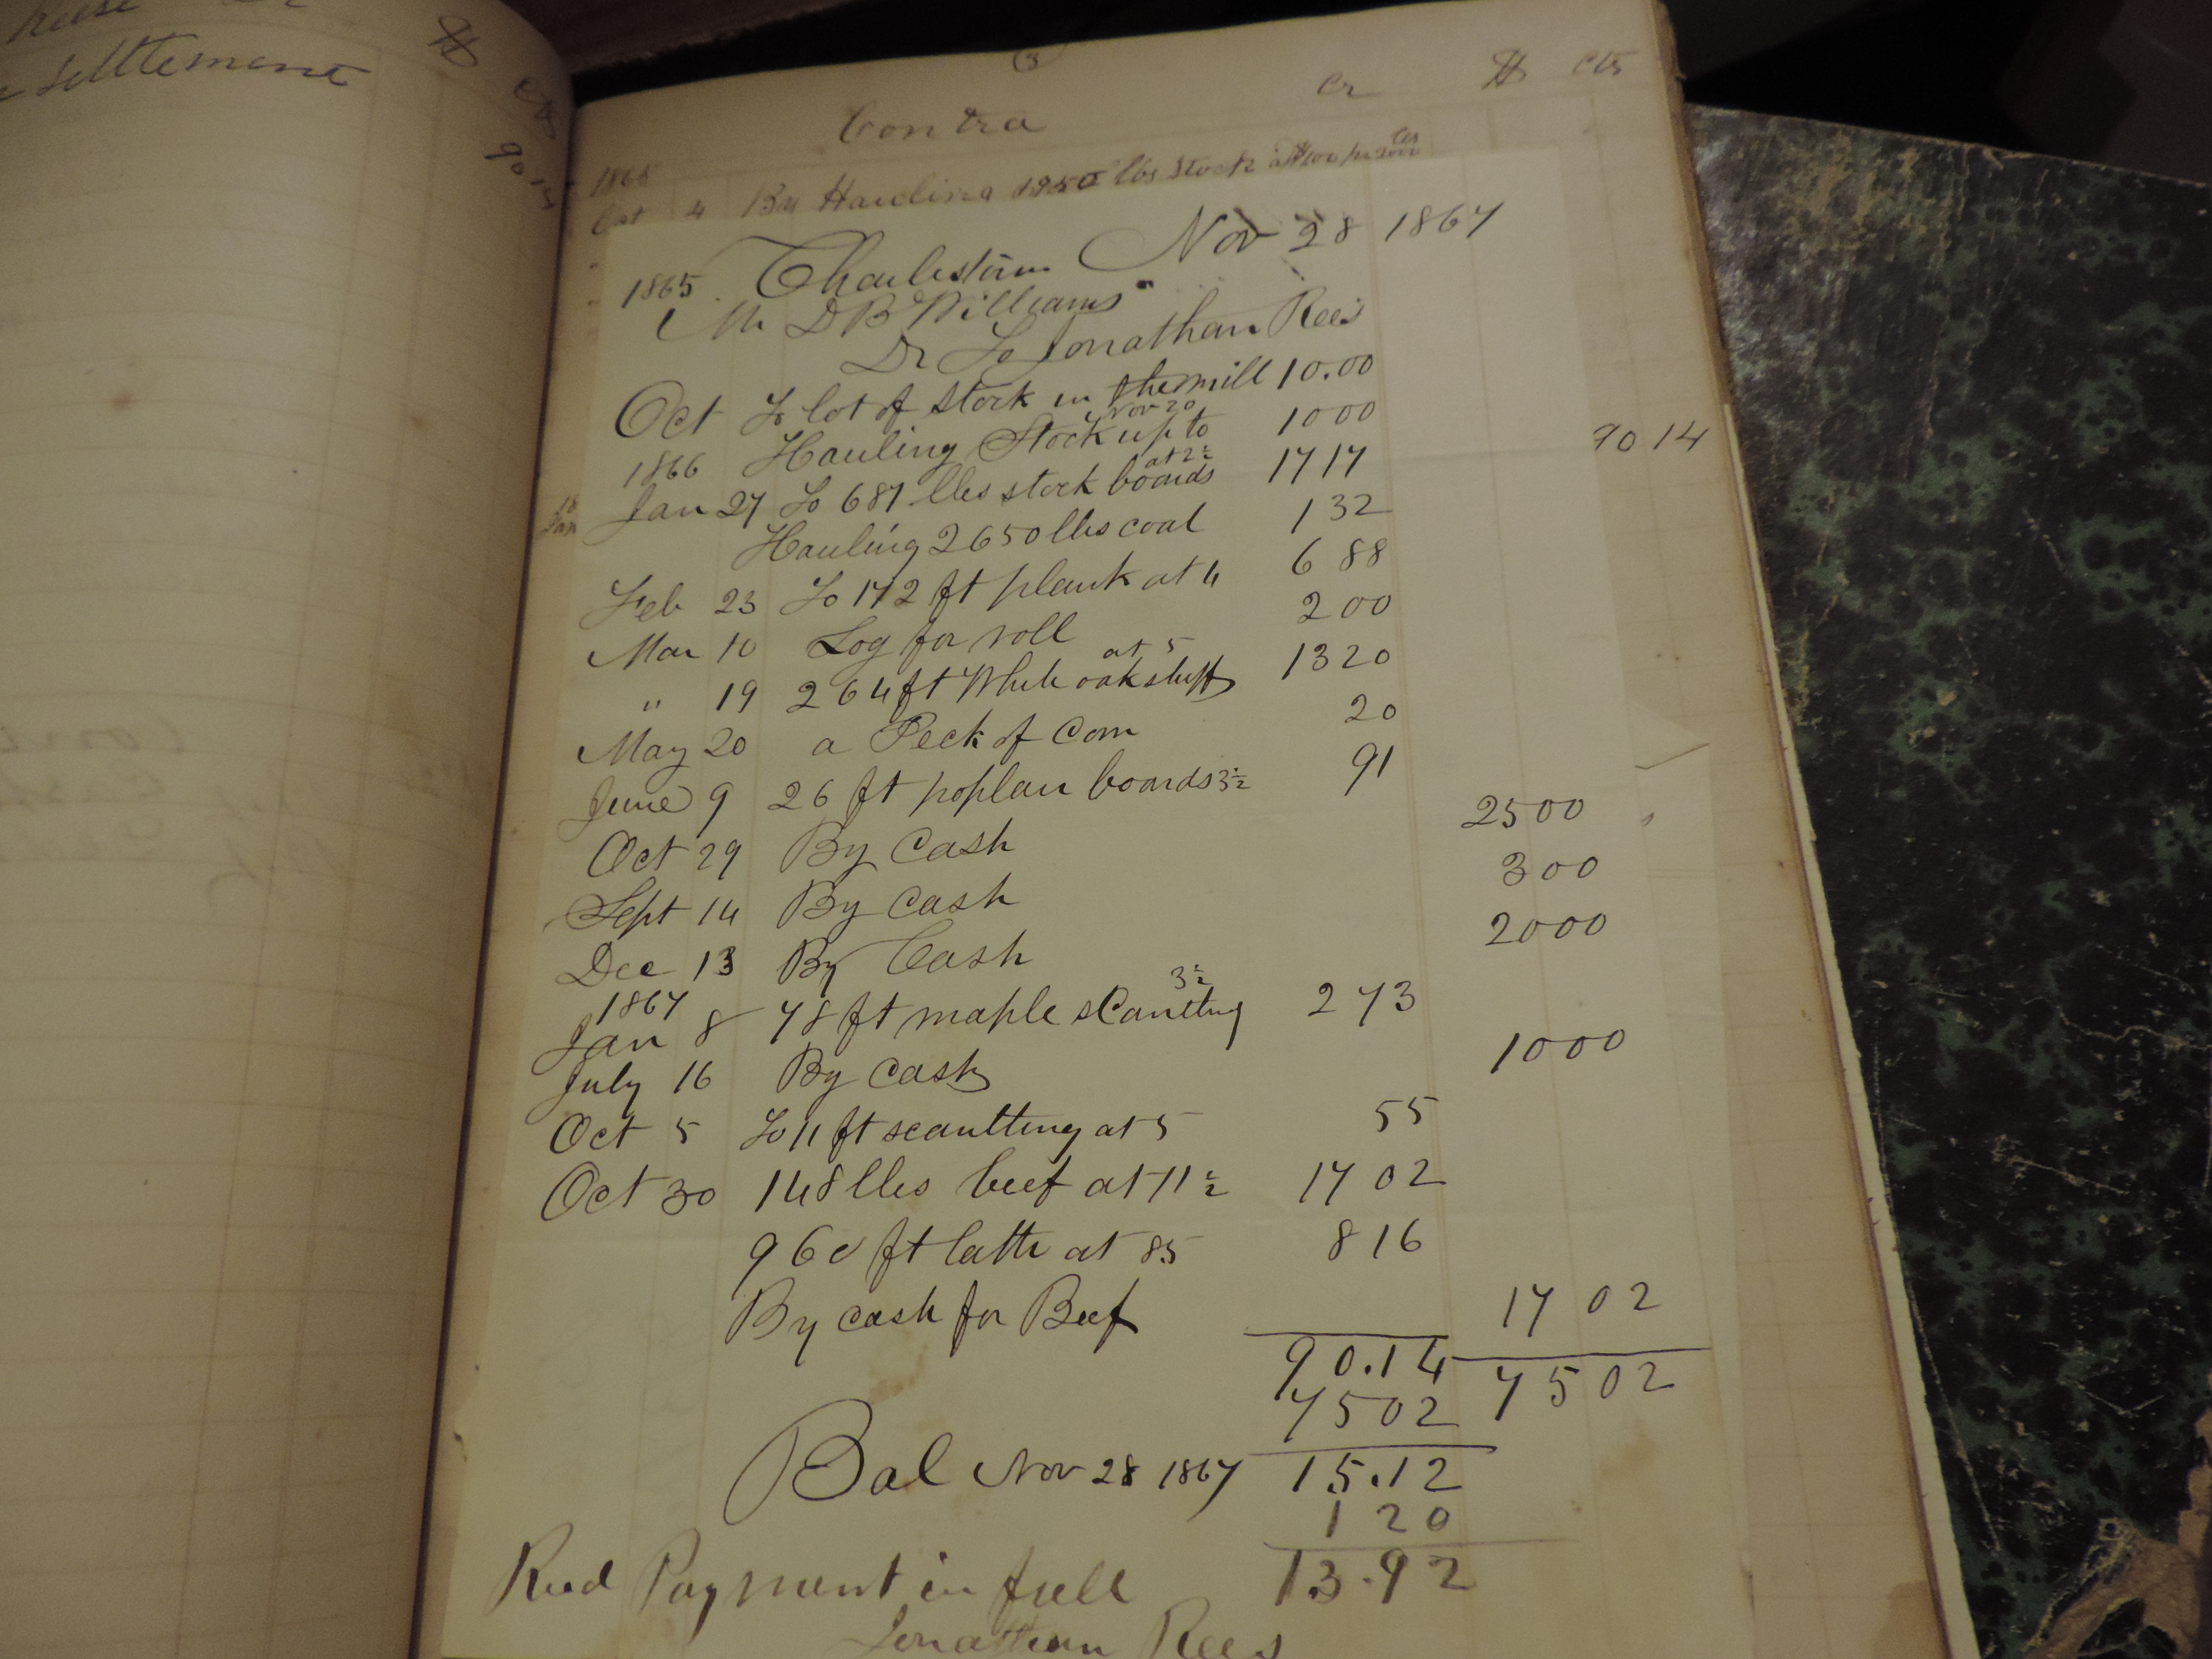 Settlement
$ cts
90 14
3
Contra Cr $ cts
1865
Oct 4 By Hauling 1950 lbs Stock
90 14
Charlestown Nov 28 1867
1865
Mr D B Williams
Dr To Jonathan Rees
Oct To lot of Stock in the mill 10.00
Hauling Stock up to Nov 20 10 00
1866
Jan 27 To 687 lbs stock boards at 2½ 17 17
Hauling 2650 lbs coal 1 32
Feb 23 To 172 ft plank at 4 6 88
Mar 10 Log for roll 2 00
" 19 264 ft White oak stuff at 5 13 20
May 20 a Peck of Corn 20
June 9 26 ft poplar boards 3½ 91
Oct 29 By Cash 25 00
Sept 14 By Cash 3 00
Dec 13 By Cash 20 00
1867
Jan 8 78 ft maple scantling 3½ 2 73
July 16 By Cash 10 00
Oct 5 To 11 ft scantting at 5 55
Oct 30 148 lbs beef at 11½ 17 02
960 ft latts at 85 8 16
By cash for Beef 17 02
90.14 75 02
75 02
Bal Nov 28 1867 15.12
1 20
Recd Payment in full 13.92
Jonathan Rees